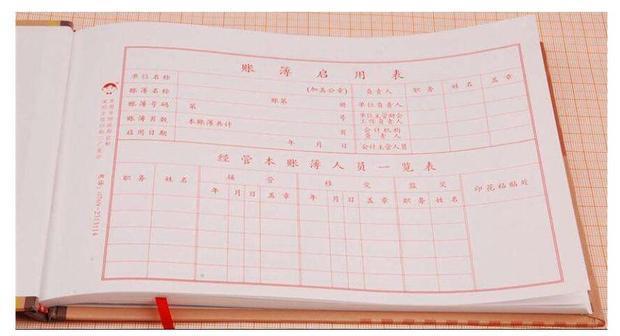 账簿启用表
单位名称 (加盖公章) 负责人 职务 姓名 盖章
账簿名称 账第 册 单位负责人
账簿号码 第 号 单位主管财会工作负责人
账簿页数 本账簿共计 页 会计机构负责人
启用日期 年 月 日 会计主管人员
经管本账簿人员一览表
职务 姓名 接管 移交 监交 印花粘贴处
年 月 日 盖章 年 月 日 盖章 职务 姓名